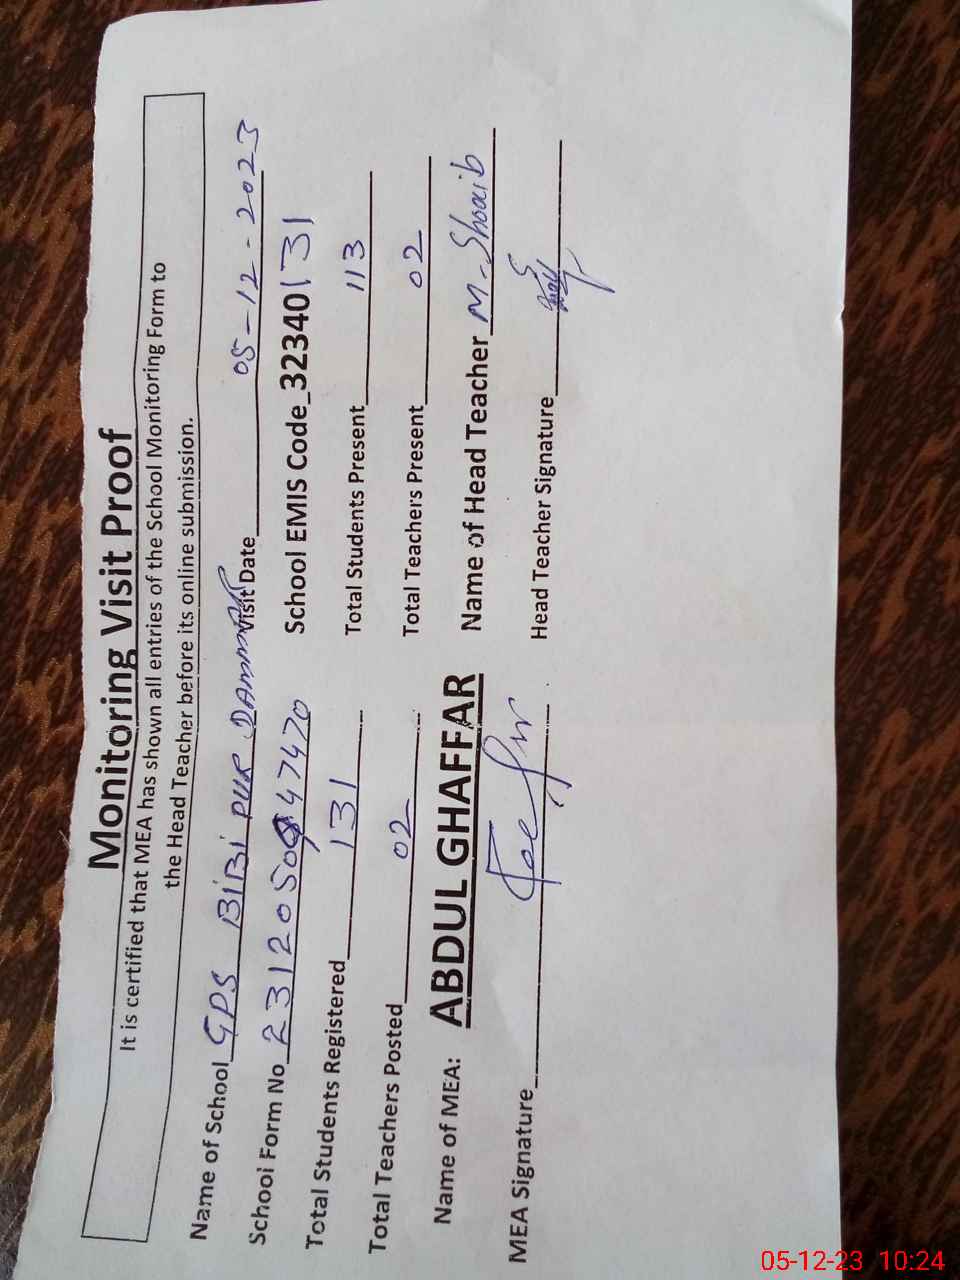 Monitoring Visit Proof
It is certified that MEA has shown all entries of the School Monitoring Form to
the Head Teacher before its online submission.
Name of School GPS BiBi PUR DAMMAR Visit Date 05-12-2023
School Form No School EMIS Code_32340131
Total Students Registered 131 Total Students Present 113
Total Teachers Posted 02 Total Teachers Present 02
Name of MEA: ABDUL GHAFFAR Name of Head Teacher M. Shoaib
MEA Signature Head Teacher Signature
05-12-23 10:24